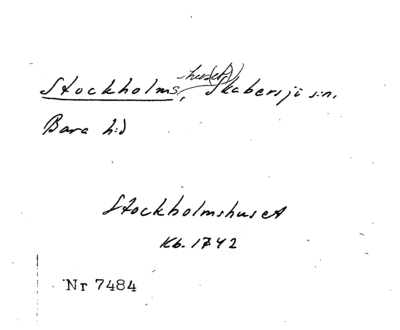 Stockholms-huset, Skabersjö s:n.
Bara h:d
Stockholmshuset
Kb. 1742
Nr 7484